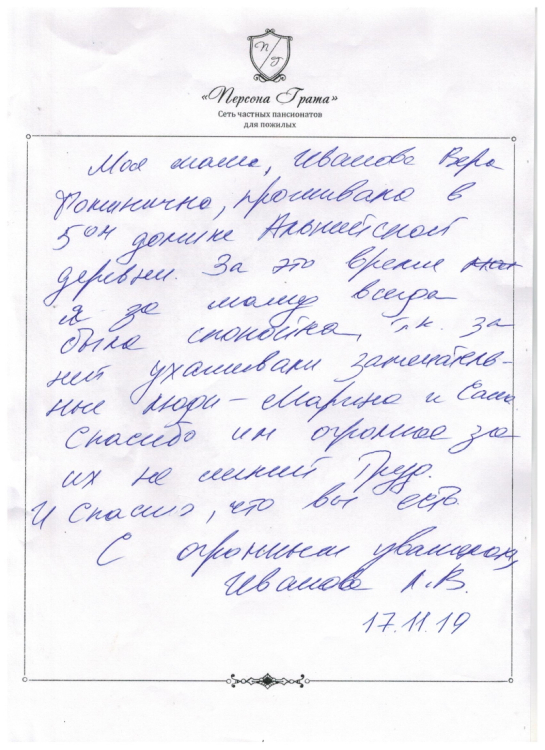 П/Г
«Персона Грата»
Сеть частных пансионатов
для пожилых
Моя мама, Иванова Вера
Фоминична, проживала в
5ом домике Альпийской
деревни. За это время
я за маму всегда
была спокойна, т.к. за
ней ухаживали замечатель-
ные люди – Марина и Саша.
Спасибо им огромное за
их не легкий труд.
И Спасибо, что вы есть.
С огромным уважением,
Иванова Л.В.
17.11.19